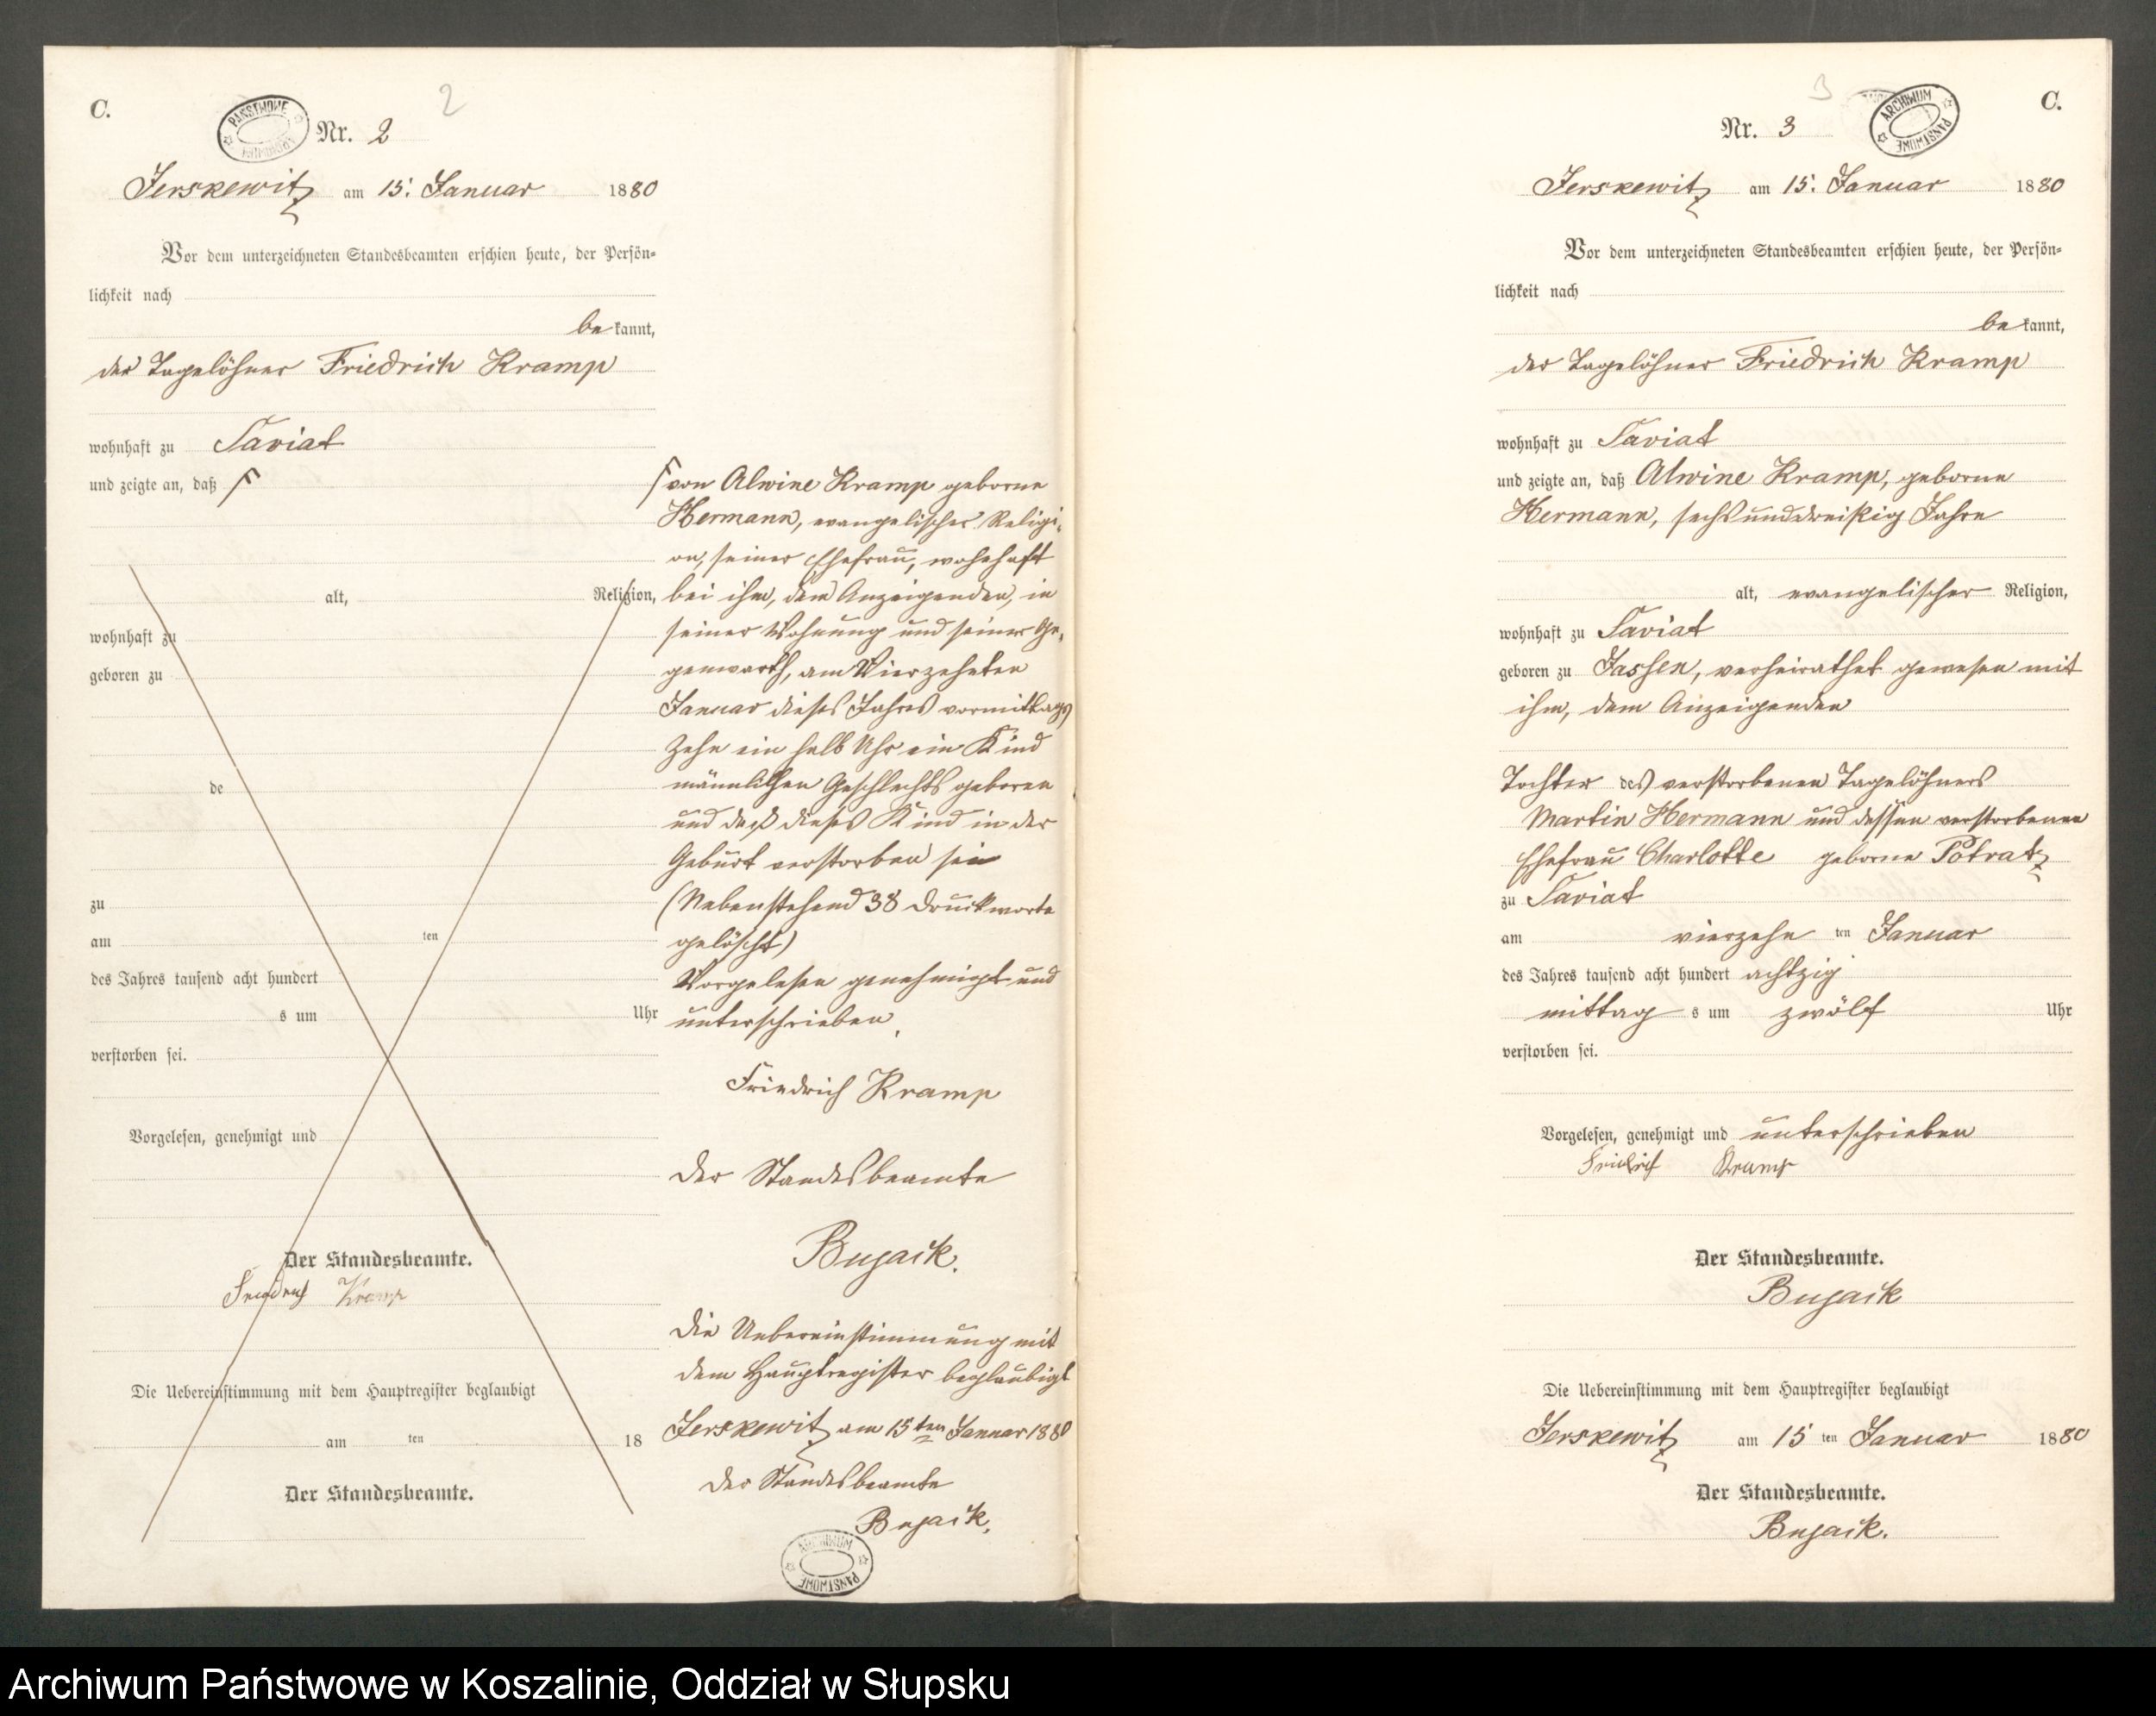 C.
2
PAŃSTWOWE ARCHIWUM
Nr. 2
Jerskewitz am 15. Januar 1880
Vor dem unterzeichneten Standesbeamten erschien heute, der Persön-
lichkeit nach
be kannt,
der Tagelöhner Friedrich Kramp
wohnhaft zu Saviat
und zeigte an, daß
alt, Religion,
wohnhaft zu
geboren zu
de
zu
am ten
des Jahres tausend acht hundert
s um Uhr
verstorben sei.
Vorgelesen, genehmigt und
Der Standesbeamte.
Friedrich Kramp
Die Uebereinstimmung mit dem Hauptregister beglaubigt
am ten 18
Der Standesbeamte.
von Alwine Kramp geborne
Hermann, evangelischer Religi-
on, seiner Ehefrau, wohnhaft
bei ihm, dem Anzeigenden, in
seiner Wohnung und seiner Ge-
genwarth, am Vierzehnten
Januar dieses Jahres vormittags
Zehn ein halb Uhr ein Kind
männlichen Geschlechts geboren
und daß dieses Kind in der
Geburt verstorben sei
(Nebenstehend 38 Druckworte
gelöscht)
Vorgelesen genehmigt und
unterschrieben
Friedrich Kramp
Der Standesbeamte
Bujack.
Die Uebereinstimmung mit
dem Hauptregister beglaubigt
Jerskewitz am 15ten Januar 1880
Der Standesbeamte
Bujack.
ARCHIWUM PAŃSTWOWE
3
C.
ARCHIWUM PAŃSTWOWE
Nr. 3
Jerskewitz am 15. Januar 1880
Vor dem unterzeichneten Standesbeamten erschien heute, der Persön-
lichkeit nach
be kannt,
der Tagelöhner Friedrich Kramp
wohnhaft zu Saviat
und zeigte an, daß Alwine Kramp, geborne
Hermann, sechsunddreißig Jahre
alt, evangelischer Religion,
wohnhaft zu Saviat
geboren zu Jassen, verheirathet gewesen mit
ihm, dem Anzeigenden
Tochter des verstorbenen Tagelöhners
Martin Hermann und dessen verstorbenen
Ehefrau Charlotte geborne Potratz
zu Saviat
am vierzehn ten Januar
des Jahres tausend acht hundert achtzig
mittag s um zwölf Uhr
verstorben sei.
Vorgelesen, genehmigt und unterschrieben
Friedrich Kramp
Der Standesbeamte.
Bujack
Die Uebereinstimmung mit dem Hauptregister beglaubigt
Jerskewitz am 15 ten Januar 1880
Der Standesbeamte.
Bujack.
Archiwum Państwowe w Koszalinie, Oddział w Słupsku